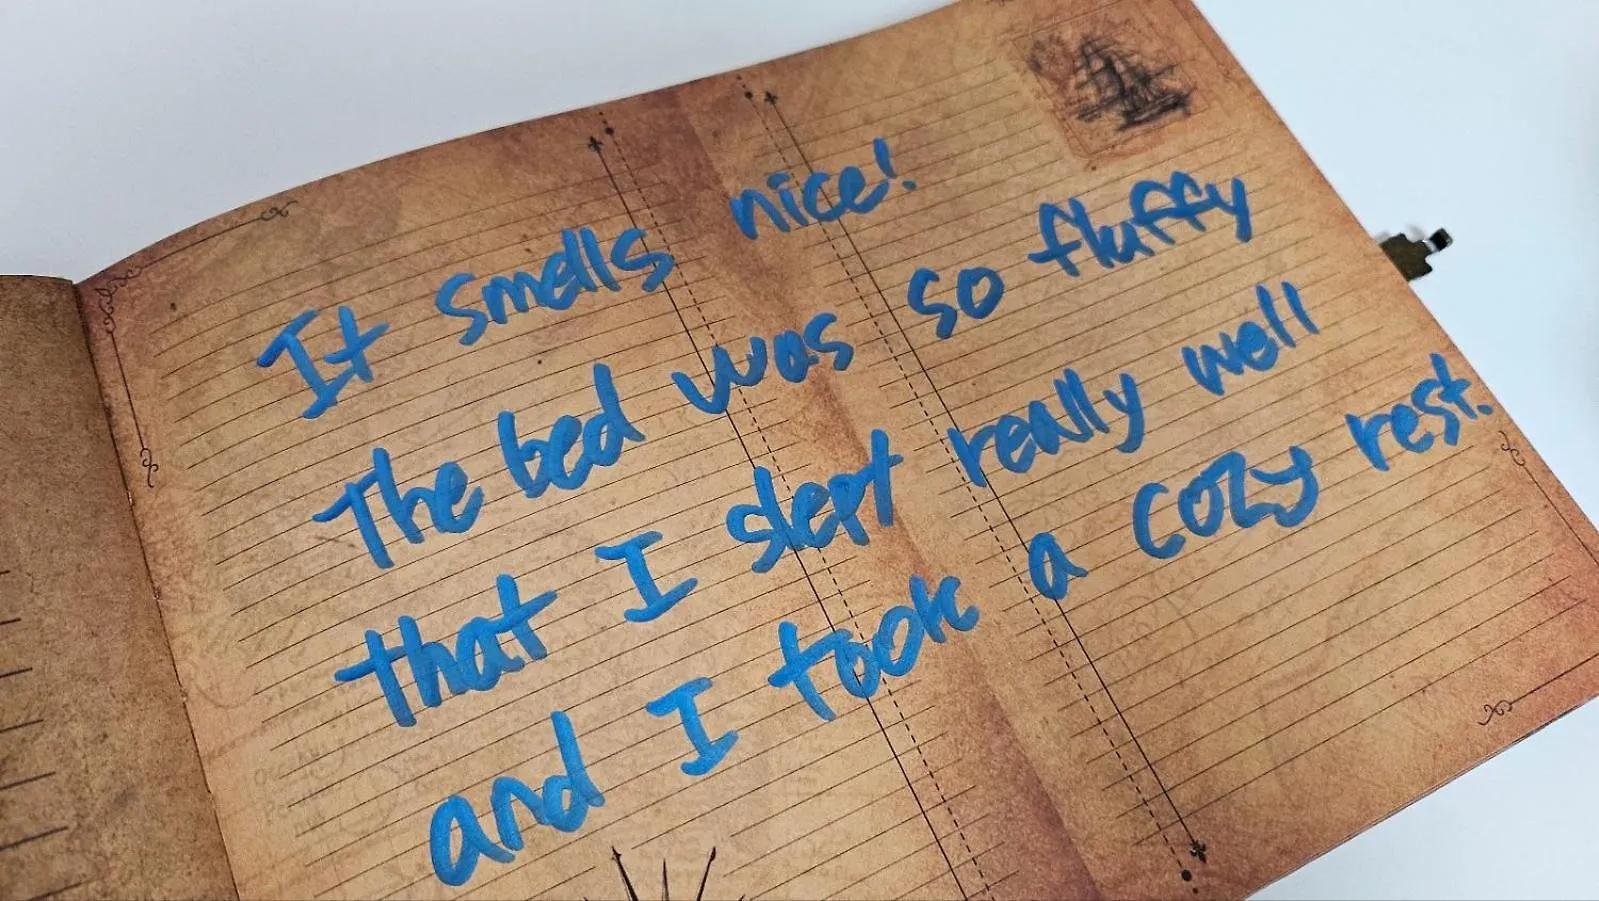 It smells nice!
The bed was so fluffy
that I slept really well
and I took a cozy rest.